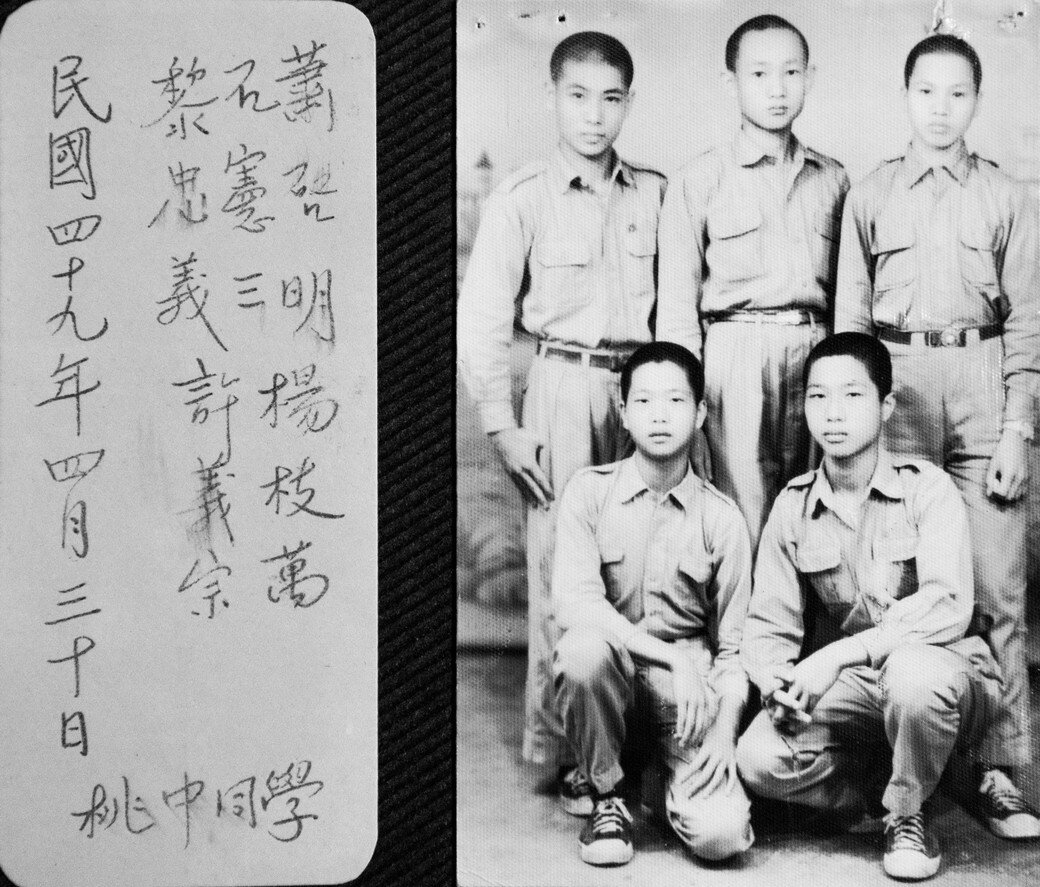 蕭啓明楊枝萬
石憲三
黎忠義許義宗
民國四十九年四月三十日
桃中同學